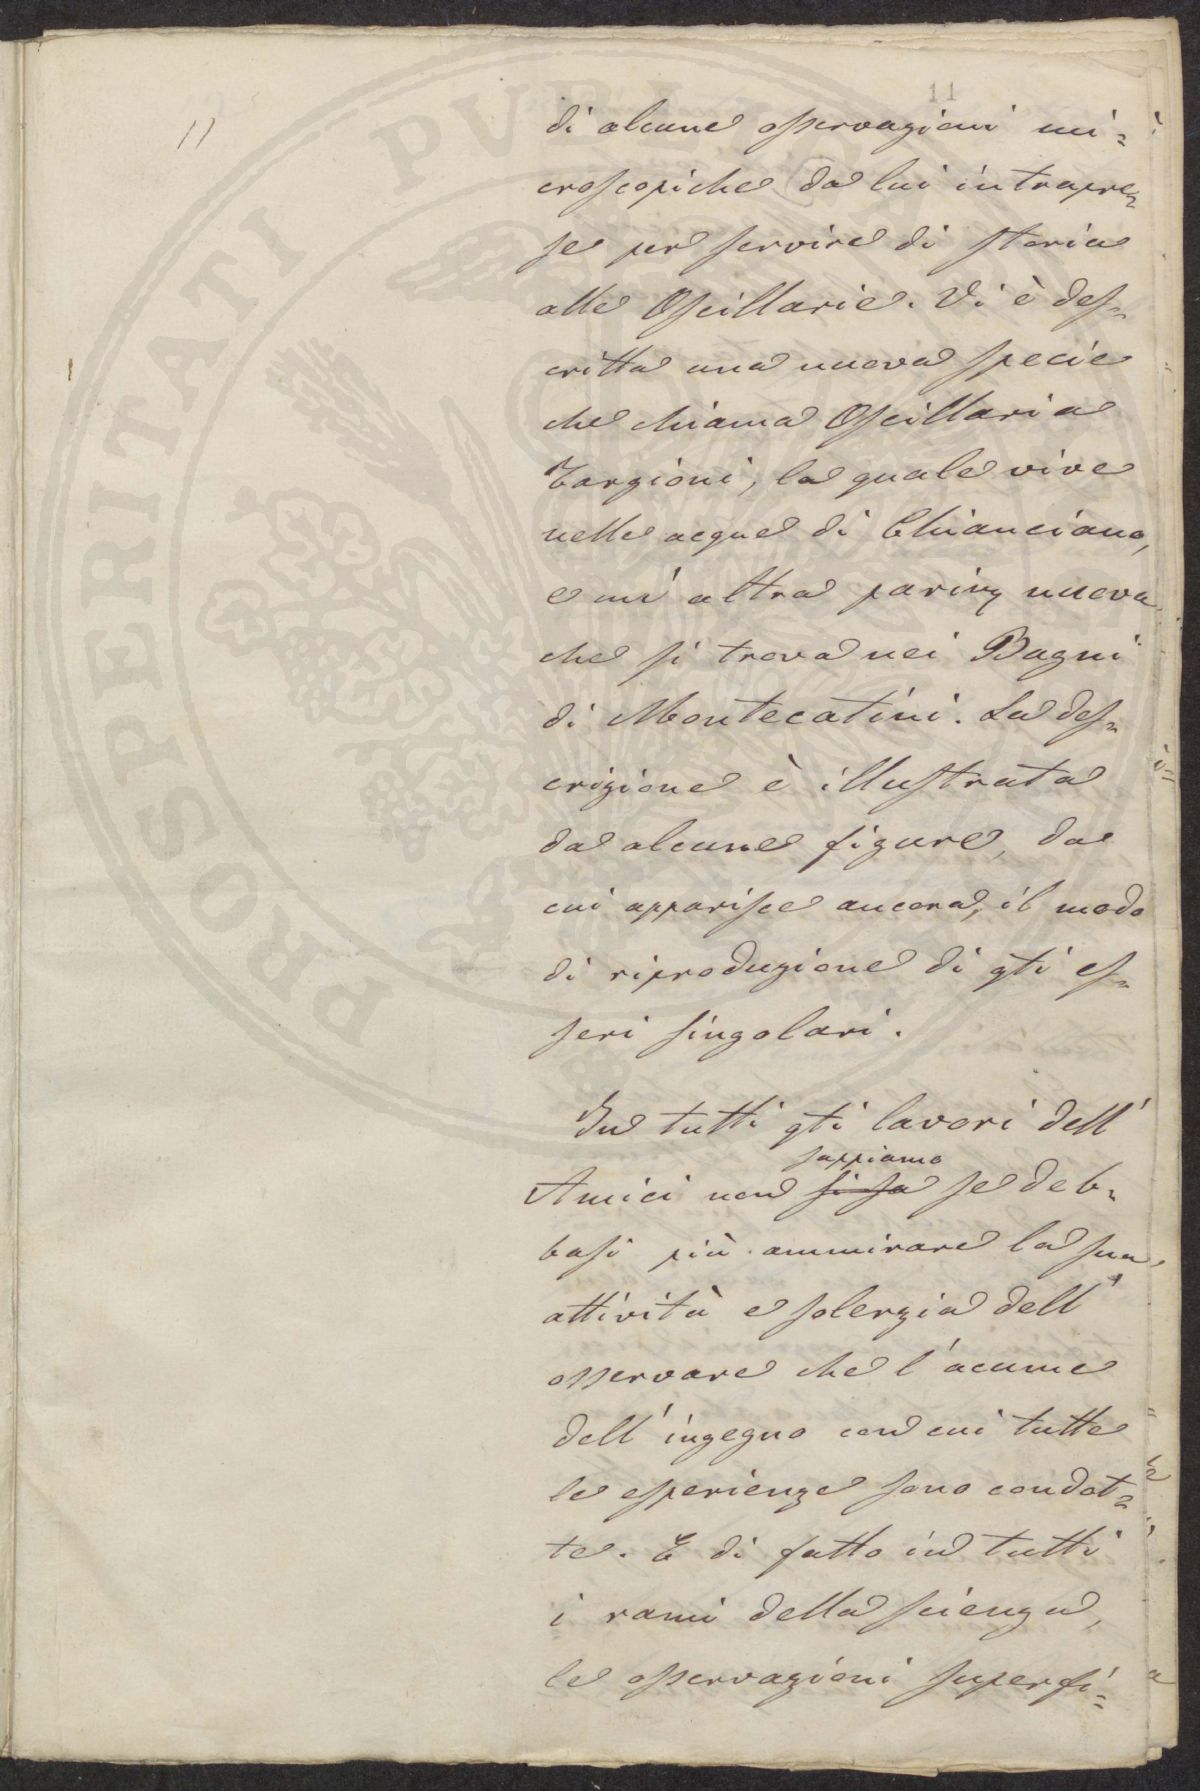 11
11
di alcune osservazioni mi=
croscopiche da lui intrapre=
se per servire di storia
alle Oscillarie. Vi è des=
critta una nuova specie
che chiama Oscillaria
Targioni, la quale vive
nelle acque di Chianciano,
e un' altra parim nuova
che si trova nei Bagni
di Montecatini. La des=
crizione è illustrata
da alcune figure, da
cui apparisce ancora, il modo
di riproduzione di qti es=
seri singolari.
In tutti qti lavori dell'
sappiamo
Amici non si sa se deb=
basi più ammirare la sua
attività e solerzia dell'
osservare che l'acume
dell'ingegno con cui tutte
le esperienze sono condot=
te. E di fatto in tutti
i rami della scienza,
le osservazioni superfi=
PROSPERITATI PUBLICAE